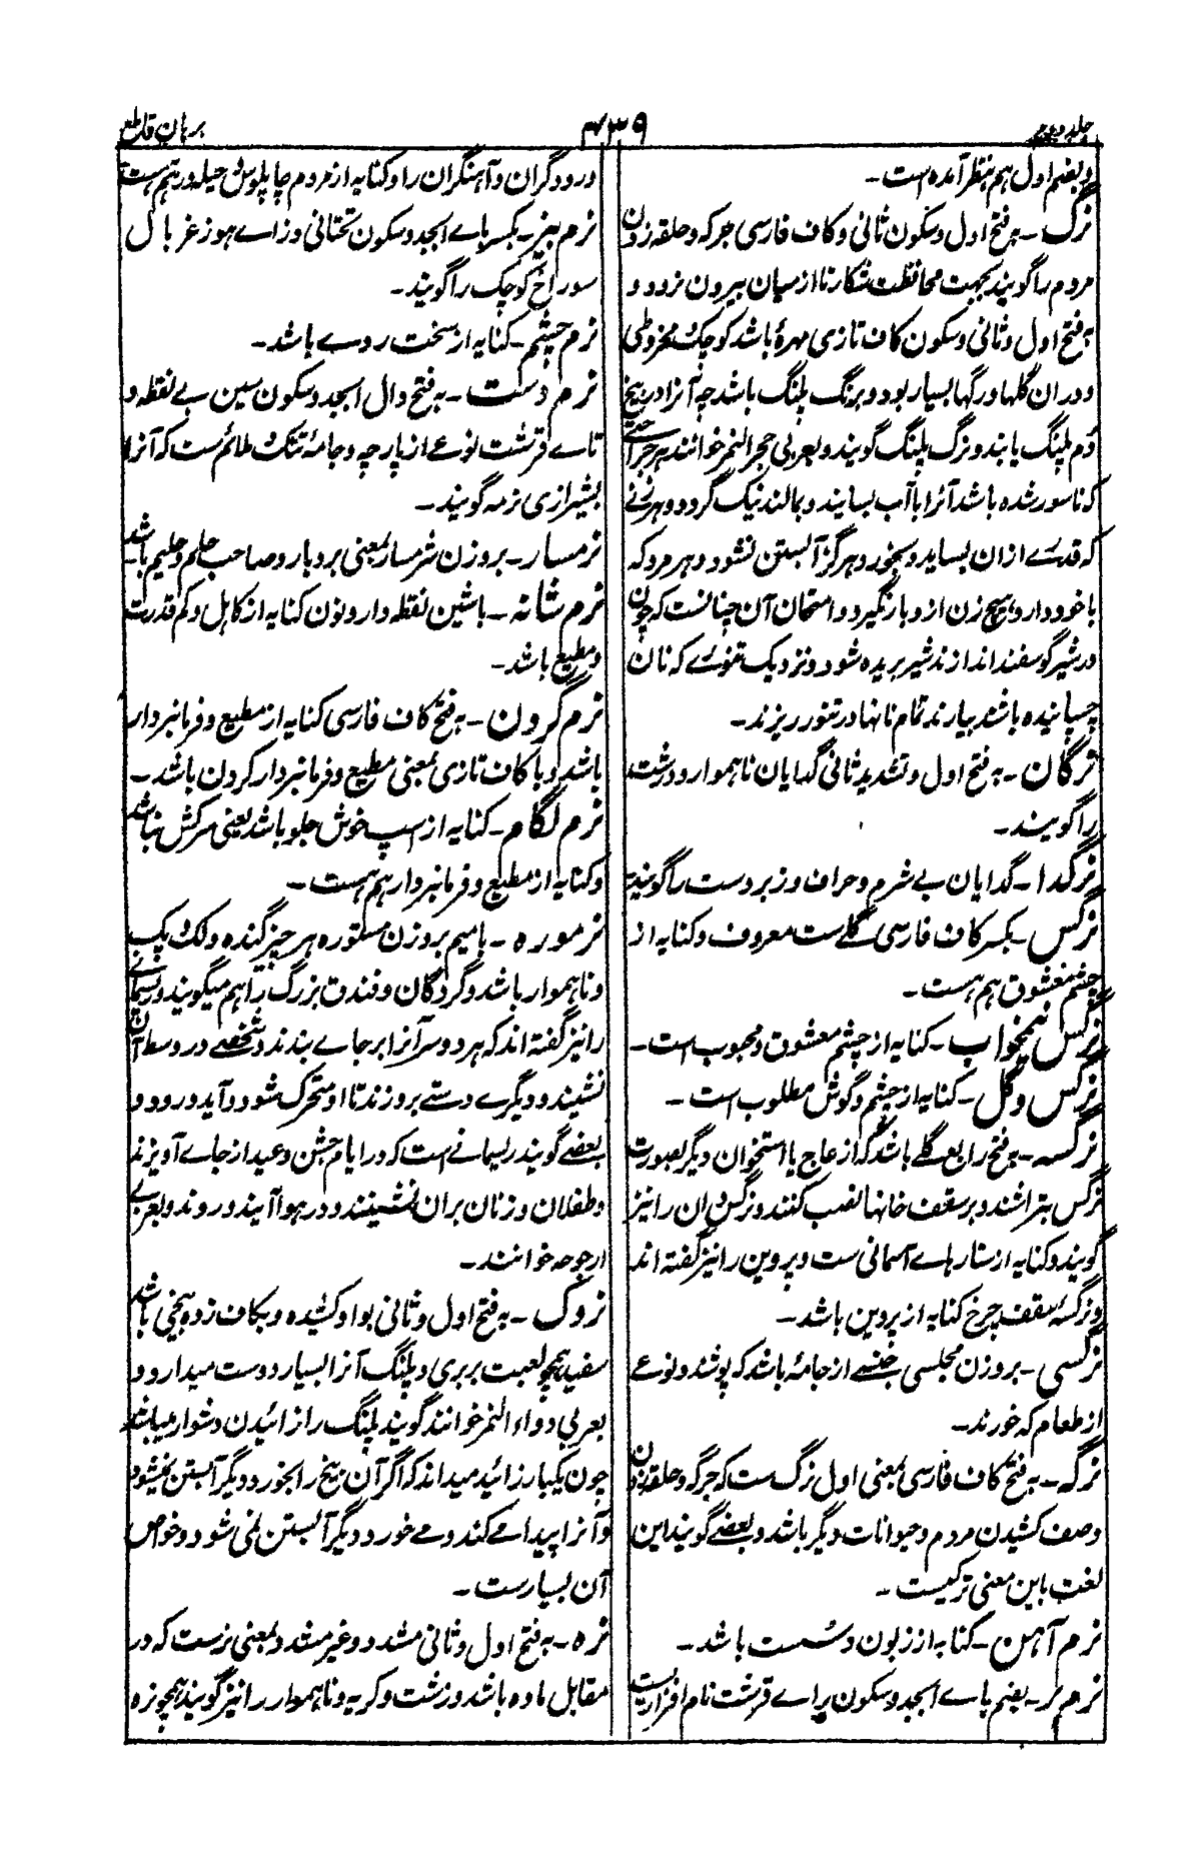 جلد دوم
۴۳۹
برہان قاطع
وبضم اول ہم بنظر آمدہ است۔
نرگ ۔ بہ فتح اول وسکون ثانی وکاف فارسی جرگہ وحلقہ زدن
مردم را گویند بجہت محافظت شکار تا از میان بیرون نرود و
بہ فتح اول وثانی وسکون کاف تازی مہرۂ باشد کوچک مخروطی
ودران گلہا ورگہا بسیار بود وبرنگ پلنگ باشد چہ آنرا در بیخ
دم پلنگ یابند ونرگ پلنگ گویند وبعربی حجر النمر خوانند ہر جراحتے
کہ ناسور شدہ باشد آنرا باآب بسایند وبمالند نیک گردد وہر زنے
کہ قدرے ازان بساید وبخورد ہرگز آبستن نشود وہر مرد کہ
باخود دارد ہیچ زن ازو بار نگیرد وامتحان آن چنانست کہ چون
در شیر گوسفند اندازند شیر بریدہ شود ونزدیک تنورے کہ نان
چسپانیدہ باشند بیارند تمام نانہا در تنور ریزند۔
نرگان ۔ بہ فتح اول وتشدید ثانی گدایان ناہموار ودرشت
را گویند۔
نرگدا ۔ گدایان بے شرم وحراف وزبردست را گویند
نرگس ۔ بکسر کاف فارسی گلے ست معروف وکنایہ از
چشم معشوق ہم ہست۔
نرگس نیمخواب ۔ کنایہ از چشم معشوق ومحبوب است۔
نرگس وگل ۔ کنایہ از چشم وگوش مطلوب است ۔
نرگسہ ۔ بہ فتح رابع گلے باشد کہ از عاج یا استخوان دیگر بصورت
نرگس بتراشند وبر سقف خانہا نصب کنند ونرگس دان را نیز
گویند وکنایہ از ستارہاے آسمانی ست وپروین را نیز گفتہ اند
ونرگسۂ سقف چرخ کنایہ از پروین باشد۔
نرگسی ۔ بروزن مجلسی جنسے از جامہ باشد کہ پوشند ونوعے
از طعام کہ خورند۔
نرگہ ۔ بہ فتح کاف فارسی بمعنی اول نرگ ست کہ جرگہ وحلقہ زدن
وصف کشیدن مردم وحیوانات دیگر باشد وبعضے گویند این
لغت باین معنی ترکیست ۔
نرم آہن ۔ کنایہ از زبون وسست باشد ۔
نرم بر ۔ بضم باے ابجد وسکون راے قرشت نام افزاریست
درودگران وآہنگران را وکنایہ از مردم چاپلوس وحیلہ ور ہم ہست
نرم بیز ۔ بکسر باے ابجد وسکون تحتانی وزاے ہوز غربال
سوراخ کوچک را گویند ۔
نرم چشم ۔ کنایہ از سخت روے باشد ۔
نرم دست ۔ بہ فتح دال ابجد وسکون سین بے نقطہ و
تاے قرشت نوعے از پارچہ وجامۂ تنک ملائم ست کہ آنرا
بشیرازی نرمہ گویند ۔
نرمسار ۔ بروزن شرمسار بمعنی بردبار وصاحب حلم وحلیم باشد
نرم شانہ ۔ باشین نقطہ دار ونون کنایہ از کاہل وکم قدرت
ومطیع باشد ۔
نرم گردن ۔ بہ فتح کاف فارسی کنایہ از مطیع وفرمانبردار
باشد وباکاف تازی بمعنی مطیع وفرمانبردار کردن باشد ۔
نرم لگام ۔ کنایہ از اسپ خوش جلو باشد یعنی سرکش نباشد
وکنایہ از مطیع وفرمانبردار ہم ہست ۔
نرمورہ ۔ بامیم بروزن مستورہ ہر چیز گندہ ولک وپک
وناہموار باشد وگردگان وفندق بزرگ را ہم میگویند وریسمانے
را نیز گفتہ اند کہ ہر دو سر آنرا برجاے بندند وشخصے در وسط آن
نشیند ودیگرے دستے برو زند تا او متحرک شود وآید ورود و
بعضے گویند ریسمانے است کہ در ایام جشن وعید از جاے آویزند
وطفلان وزنان بران نشینند ودر ہوا آیند وروند وبعربے
ارجوحہ خوانند ۔
نروک ۔ بہ فتح اول وثانی بواو کشیدہ وبکاف زدہ بیخی باشد
سفید ہمچو لعبت بربری وپلنگ آنرا بسیار دوست میدارد و
بعربی دواء النمر خوانند گویند پلنگ را زائیدن دشوار میباشد
چون یکبار زائید میداند کہ اگر آن بیخ را بخورد دیگر آبستن نمیشود
وآنرا پیدا مے کند ومے خورد دیگر آبستن نمی شود وخواص
آن بسیارست ۔
نرہ ۔ بہ فتح اول وثانی مشدد وغیر مشدد بمعنی نرست کہ در
مقابل مادہ باشد وزشت وکریہ وناہموار را نیز گویند ہمچو نرہ